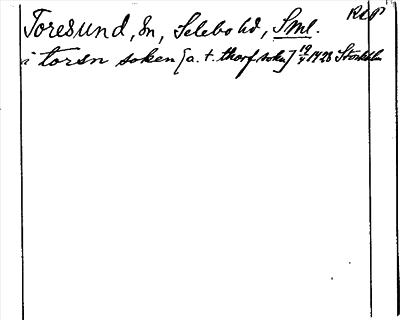 Toresund, Sn, Selebo hd, Sml. RAP
i torsn soken [a. t. thorf sokn] 19/5 1428 Stockholm